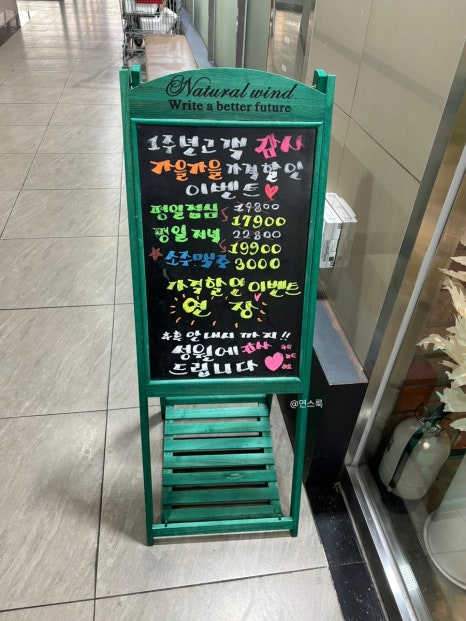 Natural wind
Write a better future
1주년 고객 감사
가을가을 가격할인
이벤트
평일점심 19800
17900
평일 저녁 22800
19900
소주맥주 3000
가격할인 이벤트
연장
추후 안내시 까지!!
성원에 감사
드립니다
@연스룩